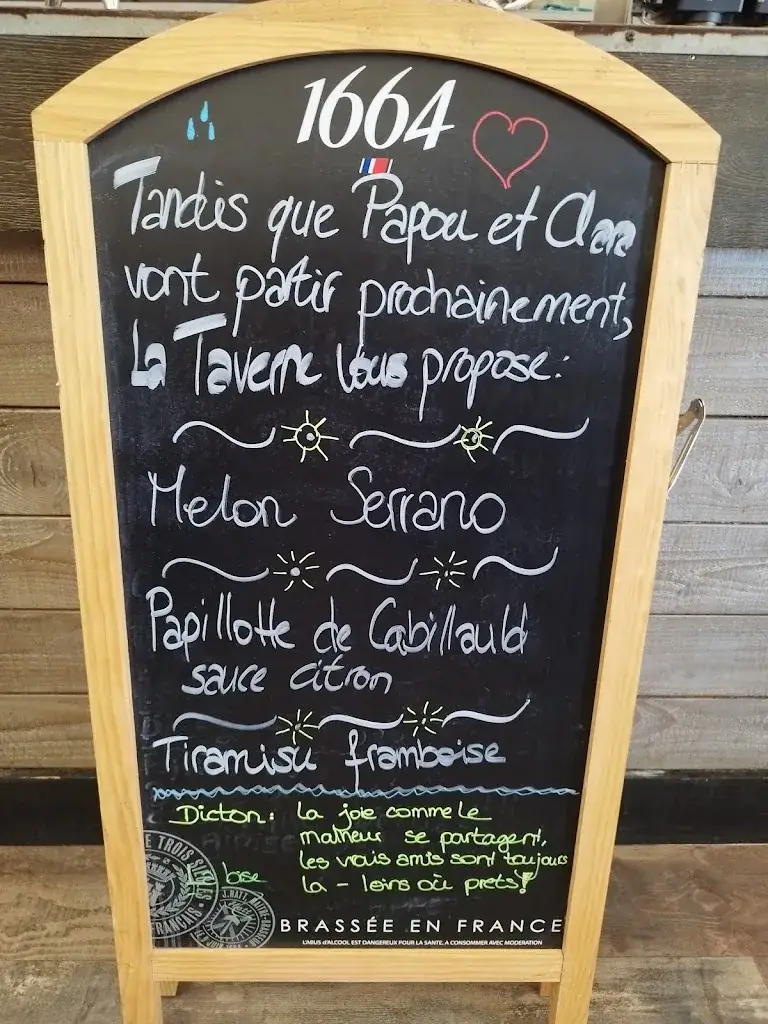 1664
Tandis que Papou et Clara
vont partir prochainement,
La Taverne vous propose:
Melon Serrano
Papillotte de Cabillauld
sauce citron
Tiramisu framboise
Dicton: la joie comme le
malheur se partagent,
les vrais amis sont toujours
là - loins où prets!
La bise
BRASSÉE EN FRANCE
L'ABUS d'ALCOOL EST DANGEREUX POUR LA SANTE, A CONSOMMER AVEC MODERATION